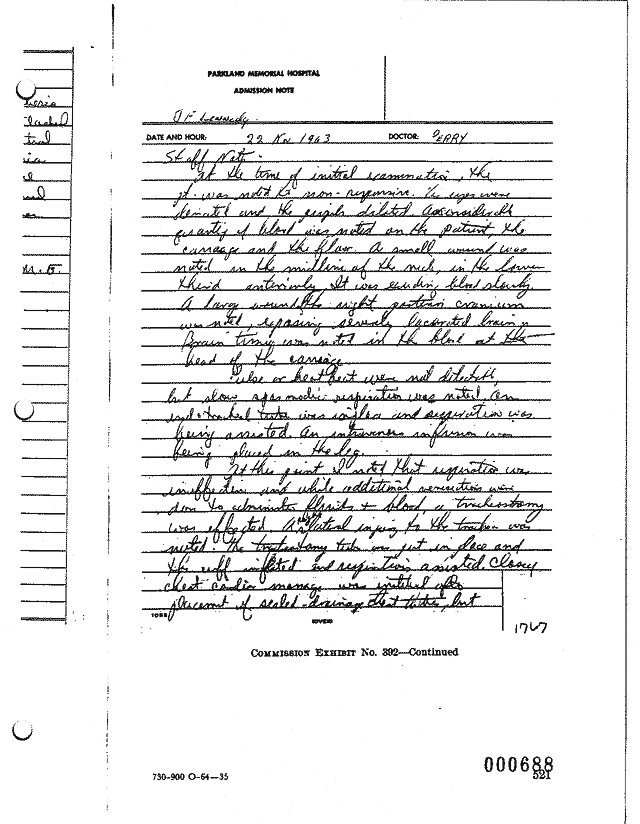 PARKLAND MEMORIAL HOSPITAL
ADMISSION NOTE
J F Kennedy
DATE AND HOUR: 22 Nov 1963 DOCTOR: PERRY
Staff Note
At the time of initial examination, the
pt. was noted to non-responsive. The eyes were
deviated and the pupils dilated. A considerable
quantity of blood was noted on the patient the
carriage and the floor. A small wound was
noted in the midline of the neck, in the lower
third anteriorly. It was exuding blood slowly.
A large wound of the right posterior cranium
was noted, exposing severely lacerated brain.
Brain tissue was noted in the blood at the
head of the carriage
Pulse or heart beat were not detectable
but slow spasmodic respiration was noted. An
endotracheal tube was in place and respiration was
being assisted. An intravenous infusion was
being placed in the leg.
At this point I noted that respiration was
ineffective and while additional venisections were
done to administer fluids + blood, a tracheostomy
was effected. A right lateral injury to the trachea was
noted. The tracheostomy tube was put in place and
the cuff inflated and respiration assisted. Closed
chest cardiac massage was instituted after
placement of sealed drainage chest tubes, but
1058
(OVER)
1767
COMMISSION EXHIBIT No. 392—Continued
730-900 O-64—35
000688
521
M. E.